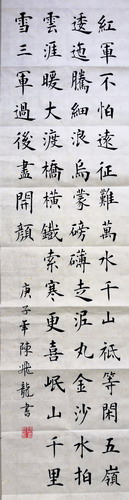 紅軍不怕遠征難萬水千山祗等閑五嶺
逶迤騰細浪烏蒙磅礴走泥丸金沙水拍
雲涯暖大渡橋橫鐵索寒更喜岷山千里
雪三軍過後盡開顏
庚子年陳飛龍書